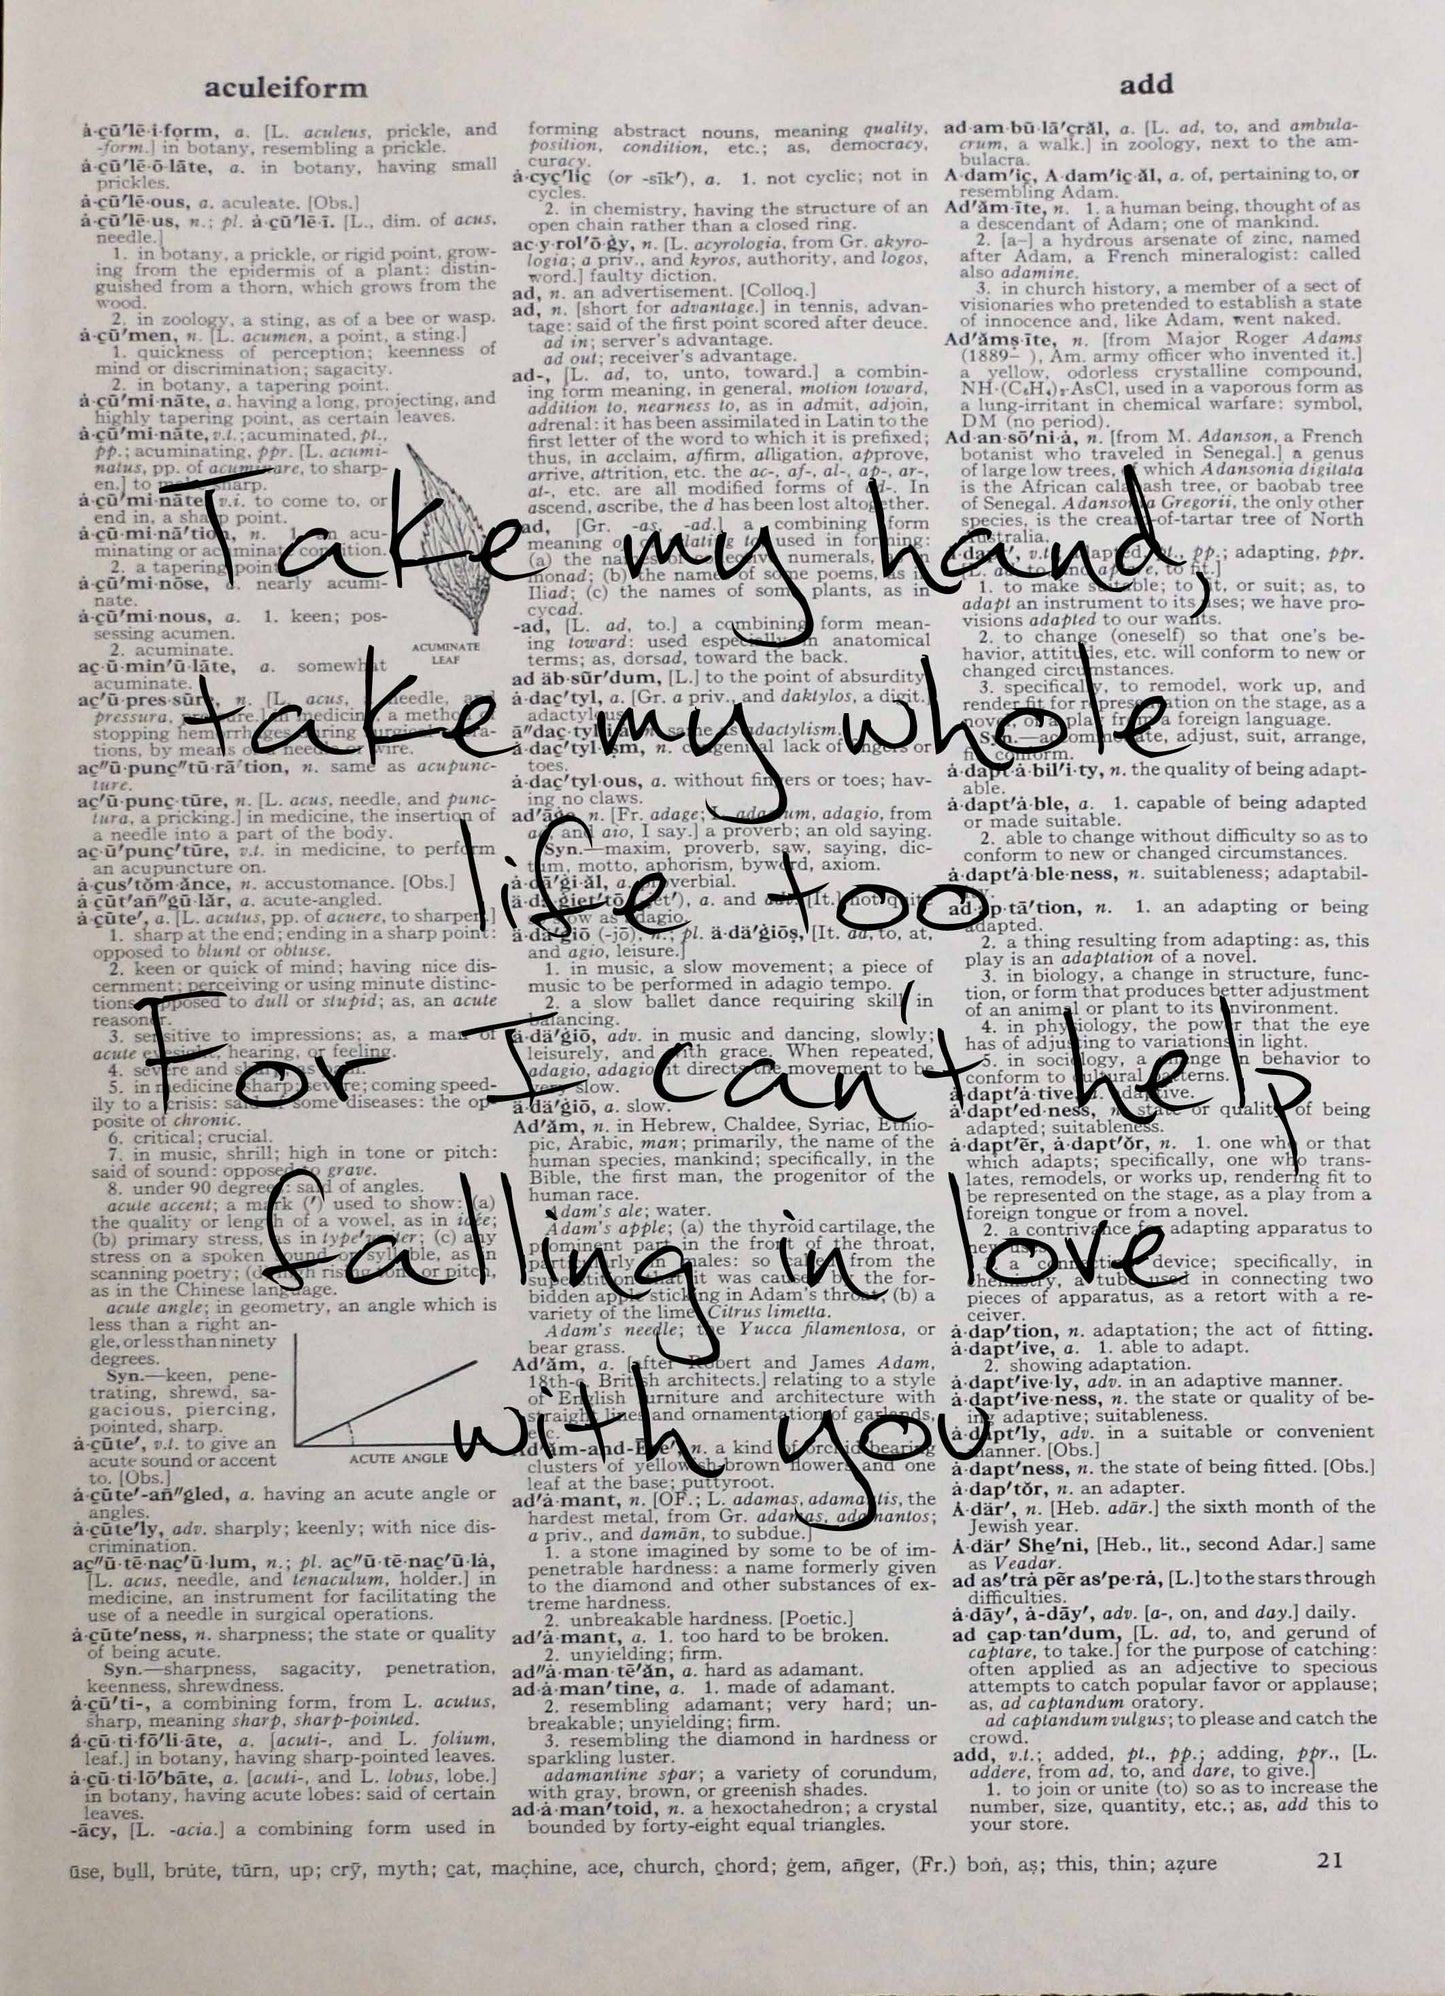 aculeiform
add
Take my hand,
take my whole
life too
For I can't help
falling in love
with you
à·çū′lē·i·form, a. [L. aculeus, prickle, and
-form.] in botany, resembling a prickle.
à·çū′lē·ō·lāte, a. in botany, having small
prickles.
à·çū′lē·ous, a. aculeate. [Obs.]
à·çū′lē·us, n.; pl. à·çū′lē·ī. [L., dim. of acus,
needle.]
1. in botany, a prickle, or rigid point, grow-
ing from the epidermis of a plant: distin-
guished from a thorn, which grows from the
wood.
2. in zoology, a sting, as of a bee or wasp.
à·çū′men, n. [L. acumen, a point, a sting.]
1. quickness of perception; keenness of
mind or discrimination; sagacity.
2. in botany, a tapering point.
à·çū′mi·nāte, a. having a long, projecting, and
highly tapering point, as certain leaves.
à·çū′mi·nāte, v.t.; acuminated, pt.,
pp.; acuminating, ppr. [L. acumi-
natus, pp. of acuminare, to sharp-
en.] to make sharp.
à·çū′mi·nāte, v.i. to come to, or
end in, a sharp point.
à·çū·mi·nā′tion, n. 1. an acu-
minating or acuminate condition.
2. a tapering point.
à·çū′mi·nōse, a. nearly acumi-
nate.
à·çū′mi·nous, a. 1. keen; pos-
sessing acumen.
2. acuminate.
ACUMINATE
LEAF
aç·ū·min′ū·lāte, a. somewhat
acuminate.
aç′ū·pres·sūre, n. [L. acus, needle, and
pressura, pressure.] in medicine, a method of
stopping hemorrhages during surgical opera-
tions, by means of needle or wire.
aç″ū·punç″tū·rā′tion, n. same as acupunc-
ture.
aç′ū·punç·tūre, n. [L. acus, needle, and punc-
tura, a pricking.] in medicine, the insertion of
a needle into a part of the body.
aç·ū′punç′tūre, v.t. in medicine, to perform
an acupuncture on.
à·çus′tŏm·ănce, n. accustomance. [Obs.]
à·çūt′añ″gū·lăr, a. acute-angled.
à·çūte′, a. [L. acutus, pp. of acuere, to sharpen.]
1. sharp at the end; ending in a sharp point:
opposed to blunt or obtuse.
2. keen or quick of mind; having nice dis-
cernment; perceiving or using minute distinc-
tions: opposed to dull or stupid; as, an acute
reasoner.
3. sensitive to impressions; as, a man of
acute eyesight, hearing, or feeling.
4. severe and sharp, as pain.
5. in medicine, sharp; severe; coming speed-
ily to a crisis: said of some diseases: the op-
posite of chronic.
6. critical; crucial.
7. in music, shrill; high in tone or pitch:
said of sound: opposed to grave.
8. under 90 degrees: said of angles.
acute accent; a mark (′) used to show: (a)
the quality or length of a vowel, as in idée;
(b) primary stress, as in type′writer; (c) any
stress on a spoken sound or syllable, as in
scanning poetry; (d) high rising tone or pitch,
as in the Chinese language.
acute angle; in geometry, an angle which is
less than a right an-
gle, or less than ninety
degrees.
Syn.—keen, pene-
trating, shrewd, sa-
gacious, piercing,
pointed, sharp.
à·çūte′, v.t. to give an
acute sound or accent
to. [Obs.]
ACUTE ANGLE
à·çūte′-añ″gled, a. having an acute angle or
angles.
à·çūte′ly, adv. sharply; keenly; with nice dis-
crimination.
aç″ū·tē·naç′ū·lum, n.; pl. aç″ū·tē·naç′ū·là,
[L. acus, needle, and tenaculum, holder.] in
medicine, an instrument for facilitating the
use of a needle in surgical operations.
à·çūte′ness, n. sharpness; the state or quality
of being acute.
Syn.—sharpness, sagacity, penetration,
keenness, shrewdness.
à·çū′ti-, a combining form, from L. acutus,
sharp, meaning sharp, sharp-pointed.
á·çū·ti·fō′li·āte, a. [acuti-, and L. folium,
leaf.] in botany, having sharp-pointed leaves.
à·çū·ti·lō′bāte, a. [acuti-, and L. lobus, lobe.]
in botany, having acute lobes: said of certain
leaves.
-ācy, [L. -acia.] a combining form used in
forming abstract nouns, meaning quality,
position, condition, etc.; as, democracy,
curacy.
à·cyç′liç (or -sīk′), a. 1. not cyclic; not in
cycles.
2. in chemistry, having the structure of an
open chain rather than a closed ring.
ac·y·rol′ō·ġy, n. [L. acyrologia, from Gr. akyro-
logia; a priv., and kyros, authority, and logos,
word.] faulty diction.
ad, n. an advertisement. [Colloq.]
ad, n. [short for advantage.] in tennis, advan-
tage: said of the first point scored after deuce.
ad in; server's advantage.
ad out; receiver's advantage.
ad-, [L. ad, to, unto, toward.] a combin-
ing form meaning, in general, motion toward,
addition to, nearness to, as in admit, adjoin,
adrenal: it has been assimilated in Latin to the
first letter of the word to which it is prefixed;
thus, in acclaim, affirm, alligation, approve,
arrive, attrition, etc. the ac-, af-, al-, ap-, ar-,
at-, etc. are all modified forms of ad-. In
ascend, ascribe, the d has been lost altogether.
-ad, [Gr. -as, -ad.] a combining form
meaning of or relating to, used in forming:
(a) the names of collective numerals, as in
monad; (b) the names of some poems, as in
Iliad; (c) the names of some plants, as in
cycad.
-ad, [L. ad, to.] a combining form mean-
ing toward: used especially in anatomical
terms; as, dorsad, toward the back.
ad äb·sūr′dum, [L.] to the point of absurdity.
à·daç′tyl, a. [Gr. a priv., and daktylos, a digit.]
adactylous.
same as adactylism.
à·daç′tyl·ism, n. congenital lack of fingers or
toes.
à·daç′tyl·ous, a. without fingers or toes; hav-
ing no claws.
ad′āġe, n. [Fr. adage; L. adagium, adagio, from
ad, and aio, I say.] a proverb; an old saying.
Syn.—maxim, proverb, saw, saying, dic-
tum, motto, aphorism, byword, axiom.
à·dā′ġi·ăl, a. proverbial.
a. and adv. [It.] not quite
so slow as adagio.
ä·dä′ġiō (-jō), n.; pl. ä·dä′ġiōṣ, [It. ad, to, at,
and agio, leisure.]
1. in music, a slow movement; a piece of
music to be performed in adagio tempo.
2. a slow ballet dance requiring skill in
balancing.
ä·dä′ġiō, adv. in music and dancing, slowly;
leisurely, and with grace. When repeated,
adagio, adagio, it directs the movement to be
very slow.
ä·dä′ġiō, a. slow.
Ad′ăm, n. in Hebrew, Chaldee, Syriac, Ethio-
pic, Arabic, man; primarily, the name of the
human species, mankind; specifically, in the
Bible, the first man, the progenitor of the
human race.
Adam's ale; water.
Adam's apple; (a) the thyroid cartilage, the
prominent part in the front of the throat,
particularly in males: so called from the
superstition that it was caused by the for-
bidden apple sticking in Adam's throat; (b) a
variety of the lime, Citrus limetta.
Adam's needle; the Yucca filamentosa, or
bear grass.
Ad′ăm, a. [after Robert and James Adam,
18th-c. British architects.] relating to a style
of English furniture and architecture with
straight lines and ornamentation of garlands,
etc.
Ad′ăm-and-Eve′, n. a kind of orchid bearing
clusters of yellowish-brown flowers and one
leaf at the base; puttyroot.
ad′à·mant, n. [OF.; L. adamas, adamantis, the
hardest metal, from Gr. adamas, adamantos;
a priv., and damān, to subdue.]
1. a stone imagined by some to be of im-
penetrable hardness: a name formerly given
to the diamond and other substances of ex-
treme hardness.
2. unbreakable hardness. [Poetic.]
ad′à·mant, a. 1. too hard to be broken.
2. unyielding; firm.
ad″à·man·tē′ăn, a. hard as adamant.
ad·à·man′tine, a. 1. made of adamant.
2. resembling adamant; very hard; un-
breakable; unyielding; firm.
3. resembling the diamond in hardness or
sparkling luster.
adamantine spar; a variety of corundum,
with gray, brown, or greenish shades.
ad·à·man′toid, n. a hexoctahedron; a crystal
bounded by forty-eight equal triangles.
ad·am·bū·lā′çrăl, a. [L. ad, to, and ambula-
crum, a walk.] in zoology, next to the am-
bulacra.
A·dam′iç, A·dam′iç·ăl, a. of, pertaining to, or
resembling Adam.
Ad′ăm·īte, n. 1. a human being, thought of as
a descendant of Adam; one of mankind.
2. [a–] a hydrous arsenate of zinc, named
after Adam, a French mineralogist: called
also adamine.
3. in church history, a member of a sect of
visionaries who pretended to establish a state
of innocence and, like Adam, went naked.
Ad′ămṣ·īte, n. [from Major Roger Adams
(1889– ), Am. army officer who invented it.]
a yellow, odorless crystalline compound,
NH·(C₆H₄)₂·AsCl, used in a vaporous form as
a lung-irritant in chemical warfare: symbol,
DM (no period).
Ad·an·sō′ni·à, n. [from M. Adanson, a French
botanist who traveled in Senegal.] a genus
of large low trees, of which Adansonia digitata
is the African calabash tree, or baobab tree
of Senegal. Adansonia Gregorii, the only other
species, is the cream-of-tartar tree of North
Australia.
à·dapt′, v.t.; adapted, pt., pp.; adapting, ppr.
[L. ad, to, and aptare, to fit.]
1. to make suitable; to fit, or suit; as, to
adapt an instrument to its uses; we have pro-
visions adapted to our wants.
2. to change (oneself) so that one's be-
havior, attitudes, etc. will conform to new or
changed circumstances.
3. specifically, to remodel, work up, and
render fit for representation on the stage, as a
novel or a play from a foreign language.
Syn.—accommodate, adjust, suit, arrange,
fit, conform.
à·dapt·à·bil′i·ty, n. the quality of being adapt-
able.
à·dapt′à·ble, a. 1. capable of being adapted
or made suitable.
2. able to change without difficulty so as to
conform to new or changed circumstances.
à·dapt′à·ble·ness, n. suitableness; adaptabil-
ity.
ad·ap·tā′tion, n. 1. an adapting or being
adapted.
2. a thing resulting from adapting: as, this
play is an adaptation of a novel.
3. in biology, a change in structure, func-
tion, or form that produces better adjustment
of an animal or plant to its environment.
4. in physiology, the power that the eye
has of adjusting to variations in light.
5. in sociology, a change in behavior to
conform to cultural patterns.
à·dapt′à·tive, a. adaptive.
à·dapt′ed·ness, n. state or quality of being
adapted; suitableness.
à·dapt′ẽr, à·dapt′ŏr, n. 1. one who or that
which adapts; specifically, one who trans-
lates, remodels, or works up, rendering fit to
be represented on the stage, as a play from a
foreign tongue or from a novel.
2. a contrivance for adapting apparatus to
new uses.
3. a connecting device; specifically, in
chemistry, a tube used in connecting two
pieces of apparatus, as a retort with a re-
ceiver.
à·dap′tion, n. adaptation; the act of fitting.
à·dapt′ive, a. 1. able to adapt.
2. showing adaptation.
à·dapt′ive·ly, adv. in an adaptive manner.
à·dapt′ive·ness, n. the state or quality of be-
ing adaptive; suitableness.
à·dapt′ly, adv. in a suitable or convenient
manner. [Obs.]
à·dapt′ness, n. the state of being fitted. [Obs.]
à·dap′tŏr, n. an adapter.
Á·där′, n. [Heb. adār.] the sixth month of the
Jewish year.
Á·där′ Shẹ′ni, [Heb., lit., second Adar.] same
as Veadar.
ad as′trà pẽr as′pe·rà, [L.] to the stars through
difficulties.
à·dāy′, à-dāy′, adv. [a-, on, and day.] daily.
ad çap·tan′dum, [L. ad, to, and gerund of
captare, to take.] for the purpose of catching:
often applied as an adjective to specious
attempts to catch popular favor or applause;
as, ad captandum oratory.
ad captandum vulgus; to please and catch the
crowd.
add, v.t.; added, pt., pp.; adding, ppr., [L.
addere, from ad, to, and dare, to give.]
1. to join or unite (to) so as to increase the
number, size, quantity, etc.; as, add this to
your store.
ūse, bụll, brúte, tũrn, up; crȳ, myth; çat, maçhine, ace, church, çhord; ġem, añger, (Fr.) boṅ, aṣ; this, thin; aẓure
21